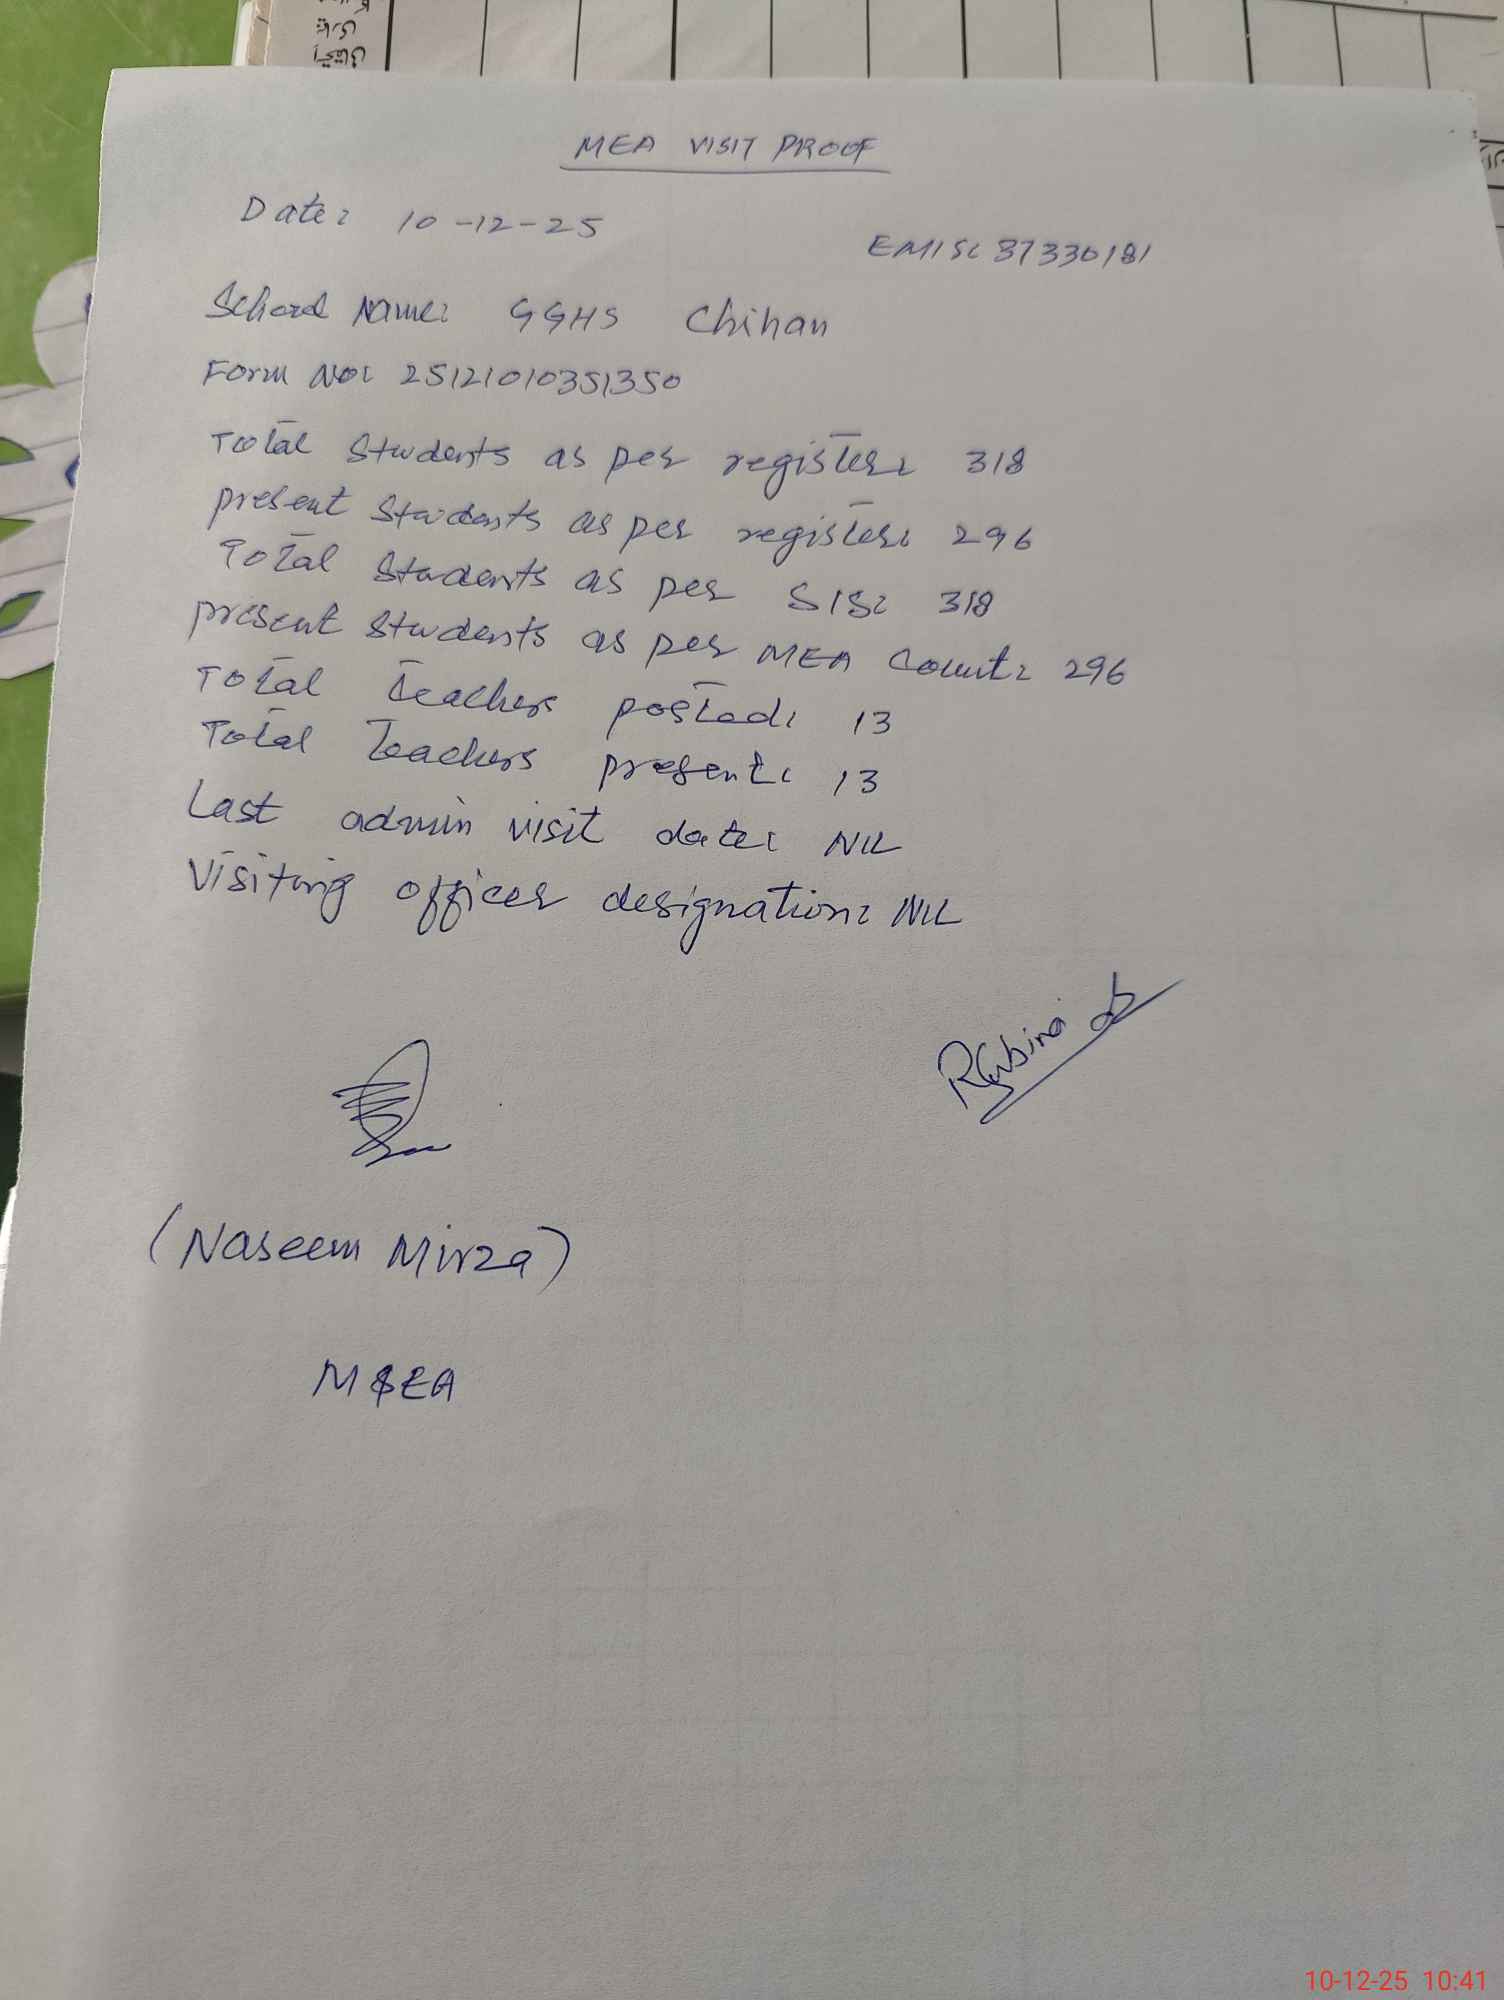 MEA VISIT PROOF
Date: 10-12-25
EMIS: 37330181
School Name: GGHS Chihan
Form No: 25121010351350
Total Students as per register: 318
present Students as per register: 296
Total Students as per SIS: 318
present Students as per MEA Count: 296
Total Teachers posted: 13
Total Teachers present: 13
Last admin visit date: NIL
Visiting officer designation: NIL
Rubina
(Naseem Mirza)
MEA
10-12-25 10:41